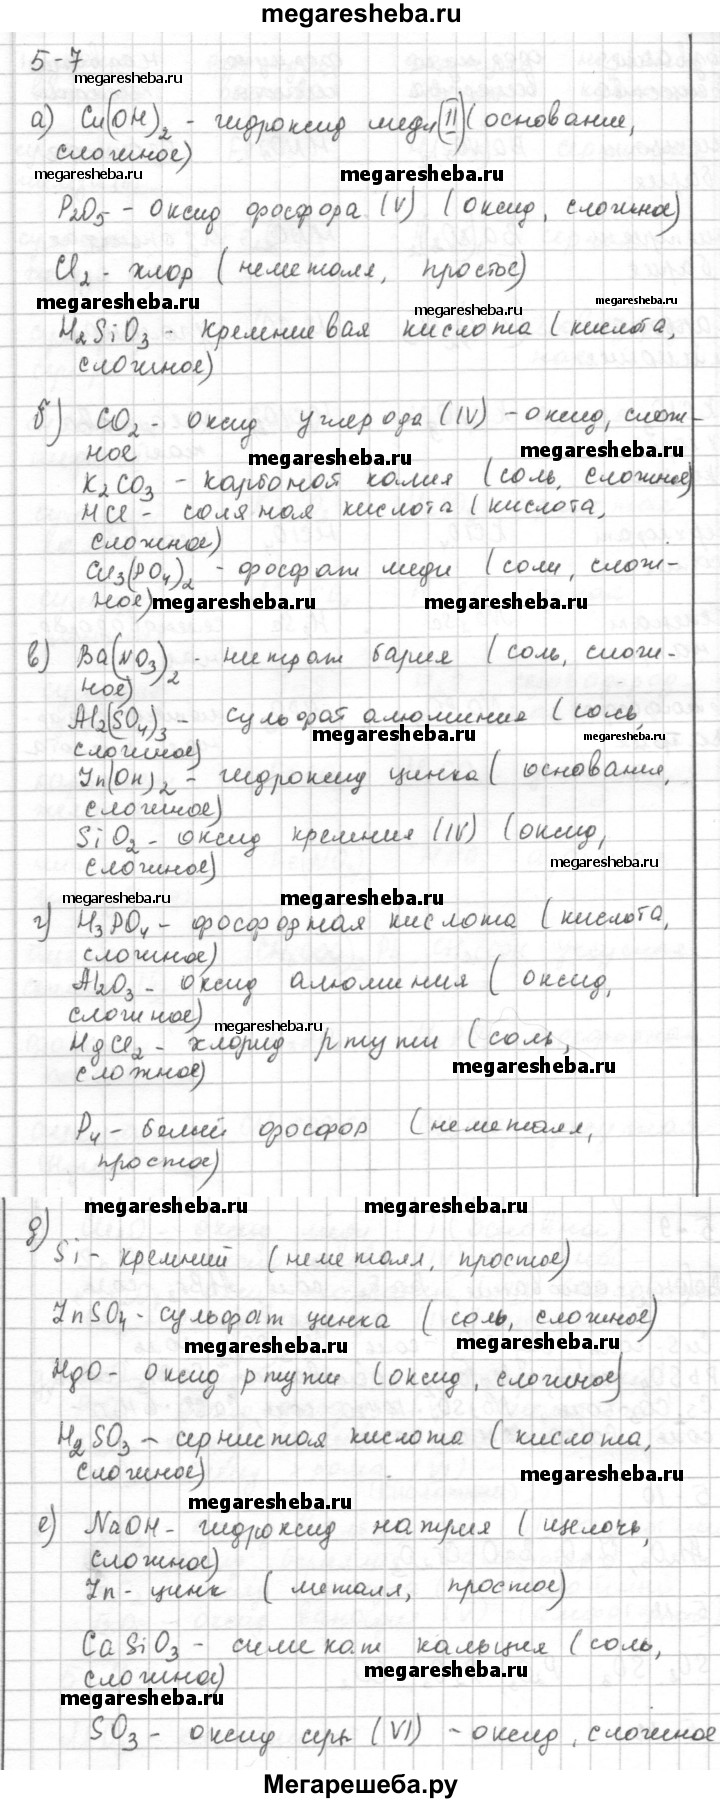 megaresheba.ru
5-7
megaresheba.ru
а) Cu(OH)2 - гидроксид меди (II) (основание,
сложное)
megaresheba.ru megaresheba.ru
P2O5 - оксид фосфора (V) (оксид, сложное)
Cl2 - хлор (неметалл, простое)
megaresheba.ru megaresheba.ru megaresheba.ru
H2SiO3 - кремниевая кислота (кислота,
сложное)
б) CO2 - оксид углерода (IV) - оксид, слож-
ное megaresheba.ru megaresheba.ru
K2CO3 - карбонат калия (соль, сложное)
HCl - соляная кислота (кислота,
сложное)
Cu3(PO4)2 - фосфат меди (соли, слож-
ное) megaresheba.ru megaresheba.ru
в) Ba(NO3)2 - нитрат бария (соль, слож-
ное)
Al2(SO4)3 - сульфат алюминия (соль,
сложное) megaresheba.ru megaresheba.ru
Zn(OH)2 - гидроксид цинка (основания,
сложное)
SiO2 - оксид кремния (IV) (оксид,
сложное) megaresheba.ru
megaresheba.ru megaresheba.ru
г) H3PO4 - фосфорная кислота (кислота,
сложное)
Al2O3 - оксид алюминия (оксид,
сложное) megaresheba.ru
HgCl2 - хлорид ртути (соль,
сложное) megaresheba.ru
P4 - белый фосфор (неметалл,
простое)
megaresheba.ru megaresheba.ru
д)
Si - кремний (неметалл, простое)
ZnSO4 - сульфат цинка (соль, сложное)
megaresheba.ru megaresheba.ru
HgO - оксид ртути (оксид, сложное)
H2SO3 - сернистая кислота (кислота,
сложное) megaresheba.ru
megaresheba.ru
е) NaOH - гидроксид натрия (щелочь,
сложное)
Zn - цинк (металл, простое)
CaSiO3 - силикат кальция (соль,
сложное) megaresheba.ru
megaresheba.ru
SO3 - оксид серы (VI) - оксид, сложное
Мегарешеба.ру